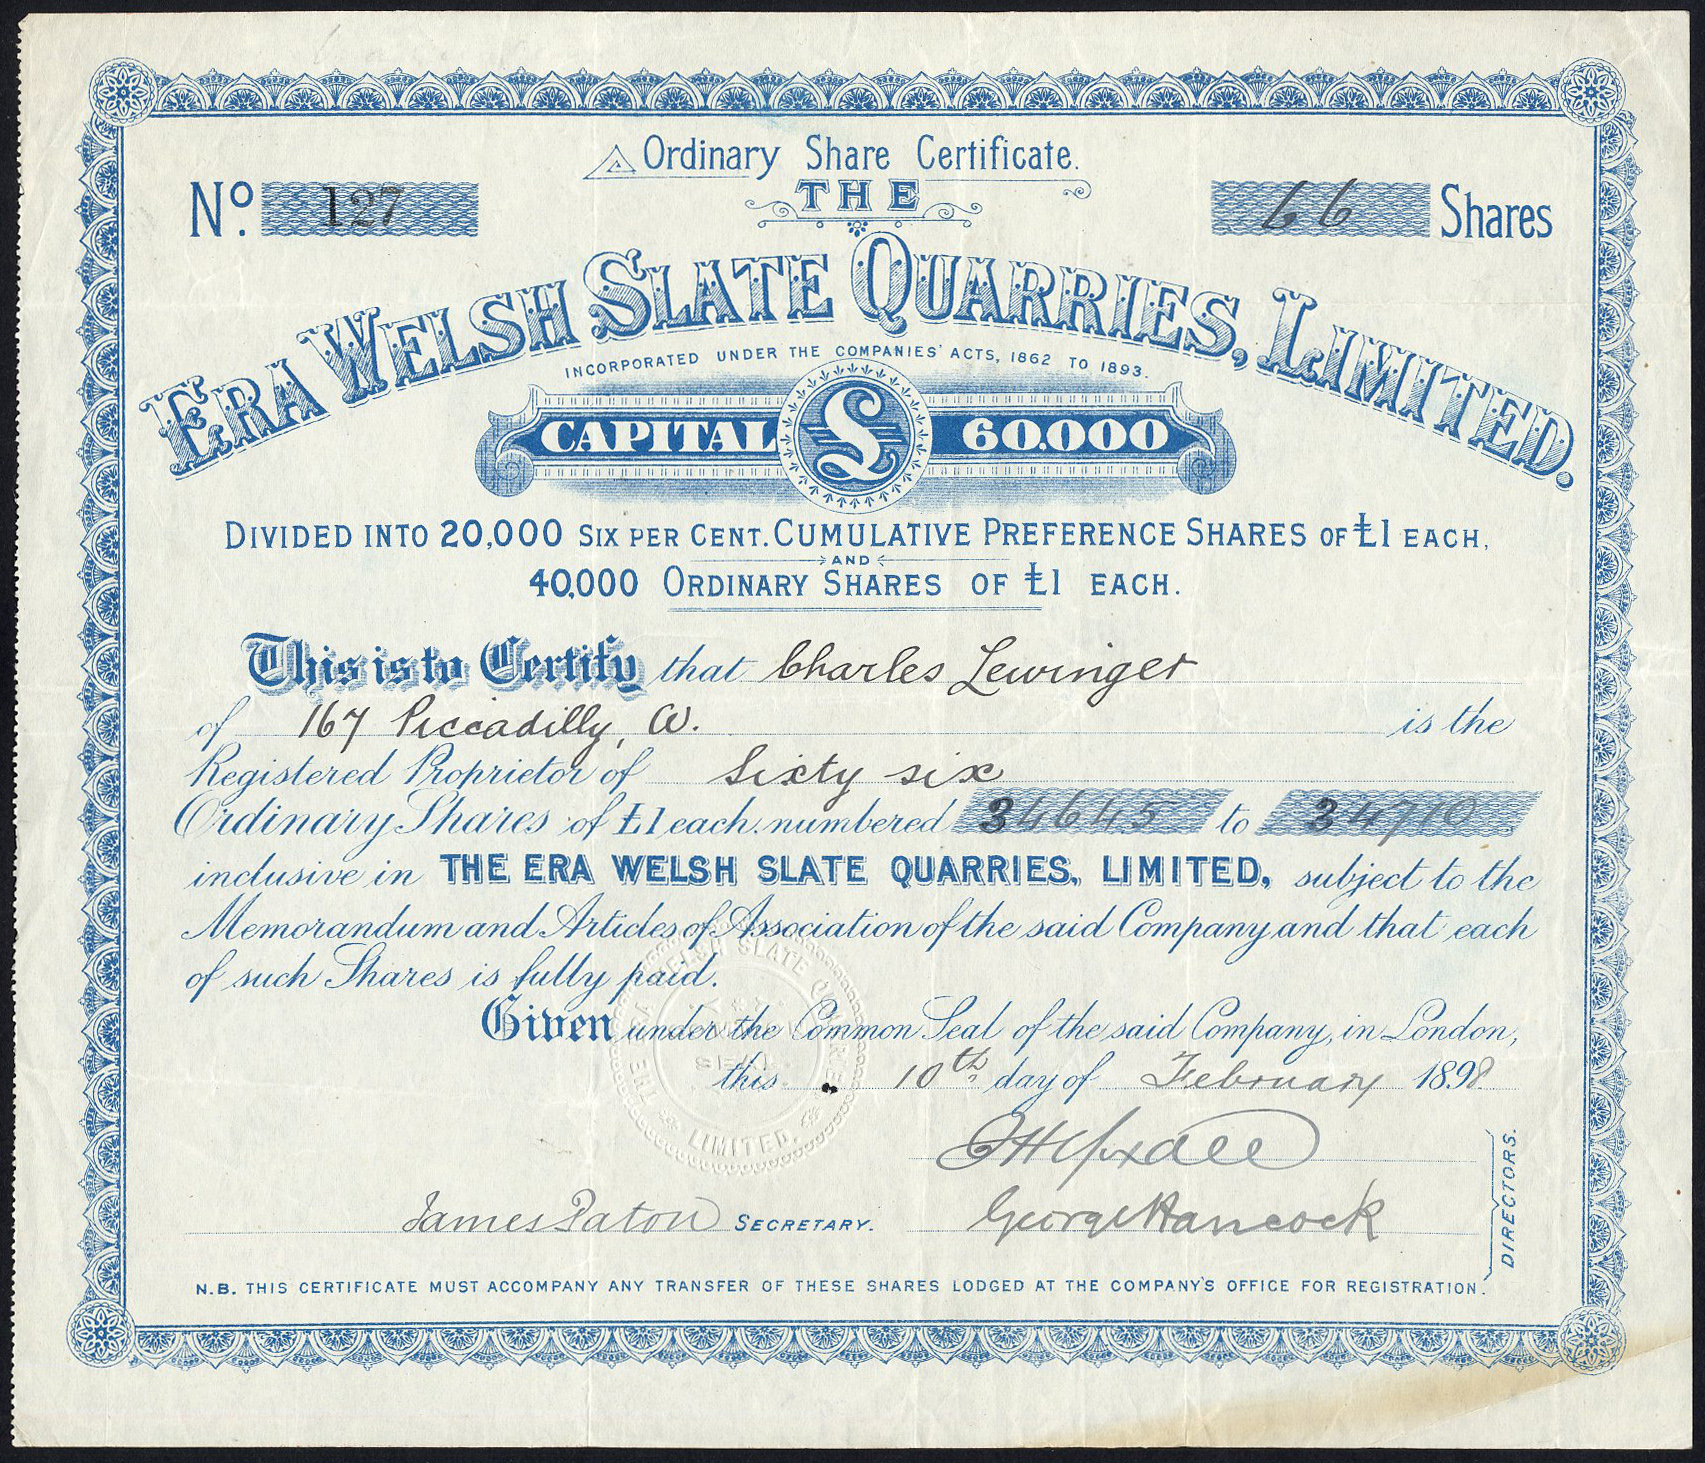 Ordinary Share Certificate.
No. 127
THE
66 Shares
ERA WELSH SLATE QUARRIES, LIMITED.
INCORPORATED UNDER THE COMPANIES' ACTS, 1862 TO 1893.
CAPITAL £ 60,000
DIVIDED INTO 20,000 SIX PER CENT. CUMULATIVE PREFERENCE SHARES OF £1 EACH,
AND
40,000 ORDINARY SHARES OF £1 EACH.
This is to Certify that Charles Lewinger
of 167 Piccadilly, W. is the
Registered Proprietor of Sixty six
Ordinary Shares of £1 each, numbered 34645 to 34710
inclusive in THE ERA WELSH SLATE QUARRIES, LIMITED, subject to the
Memorandum and Articles of Association of the said Company, and that each
of such Shares is fully paid.
Given under the Common Seal of the said Company, in London,
this 10th day of February 1898
THE ERA WELSH SLATE QUARRIES LIMITED.
James Paton SECRETARY.
George Hancock
DIRECTORS.
N.B. THIS CERTIFICATE MUST ACCOMPANY ANY TRANSFER OF THESE SHARES LODGED AT THE COMPANY'S OFFICE FOR REGISTRATION.